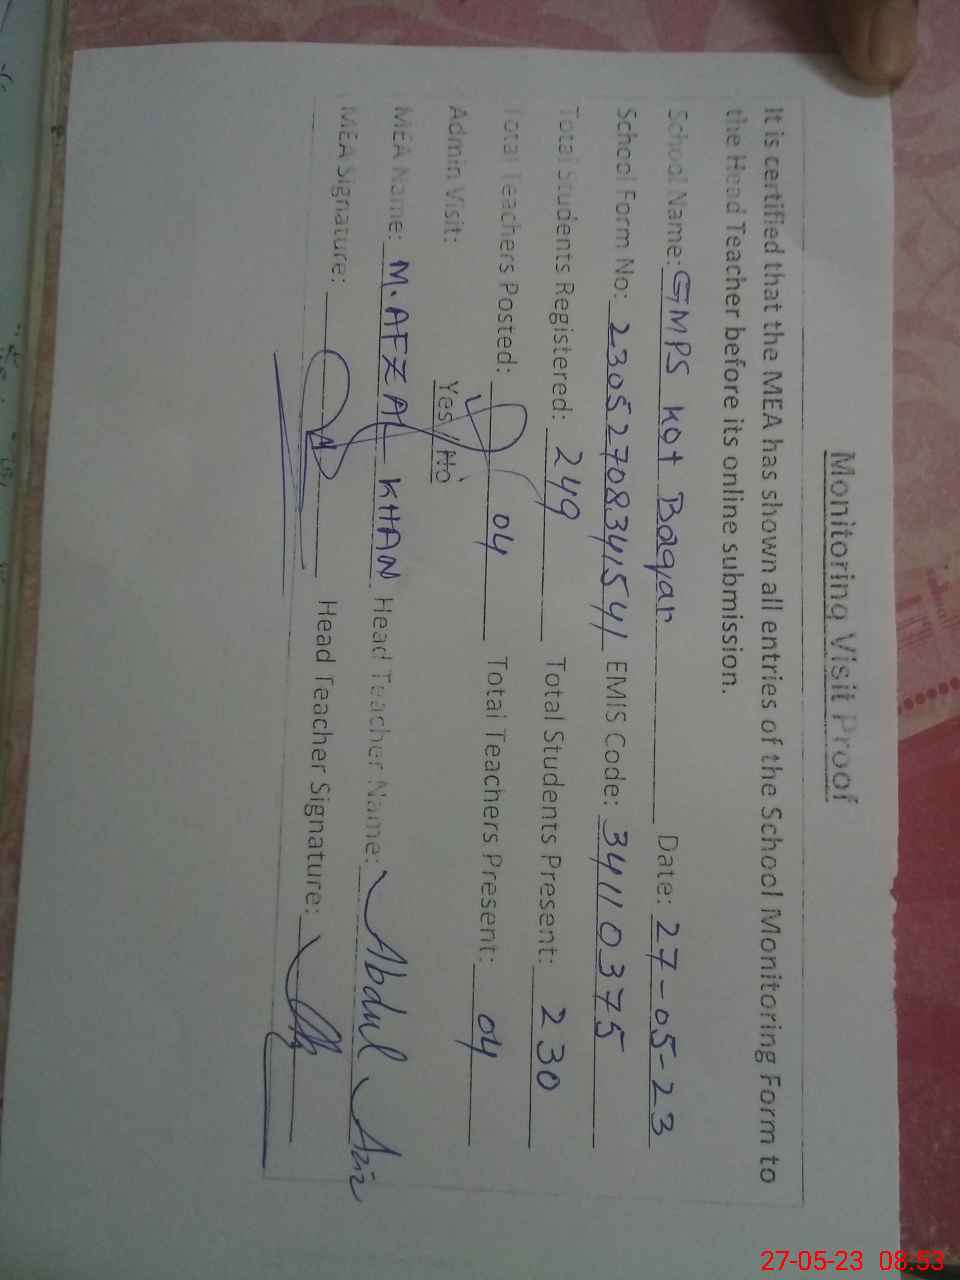 Monitoring Visit Proof
It is certified that the MEA has shown all entries of the School Monitoring Form to
the Head Teacher before its online submission.
School Name: GMPS Kot Baqar Date: 27-05-23
School Form No: 230527083415541 EMIS Code: 34110375
Total Students Registered: 249 Total Students Present: 230
Total Teachers Posted: 04 Total Teachers Present: 04
Admin Visit: Yes/No
MEA Name: M. AFZAL KHAN Head Teacher Name: Abdul Aziz
MEA Signature: Head Teacher Signature:
27-05-23 08:53